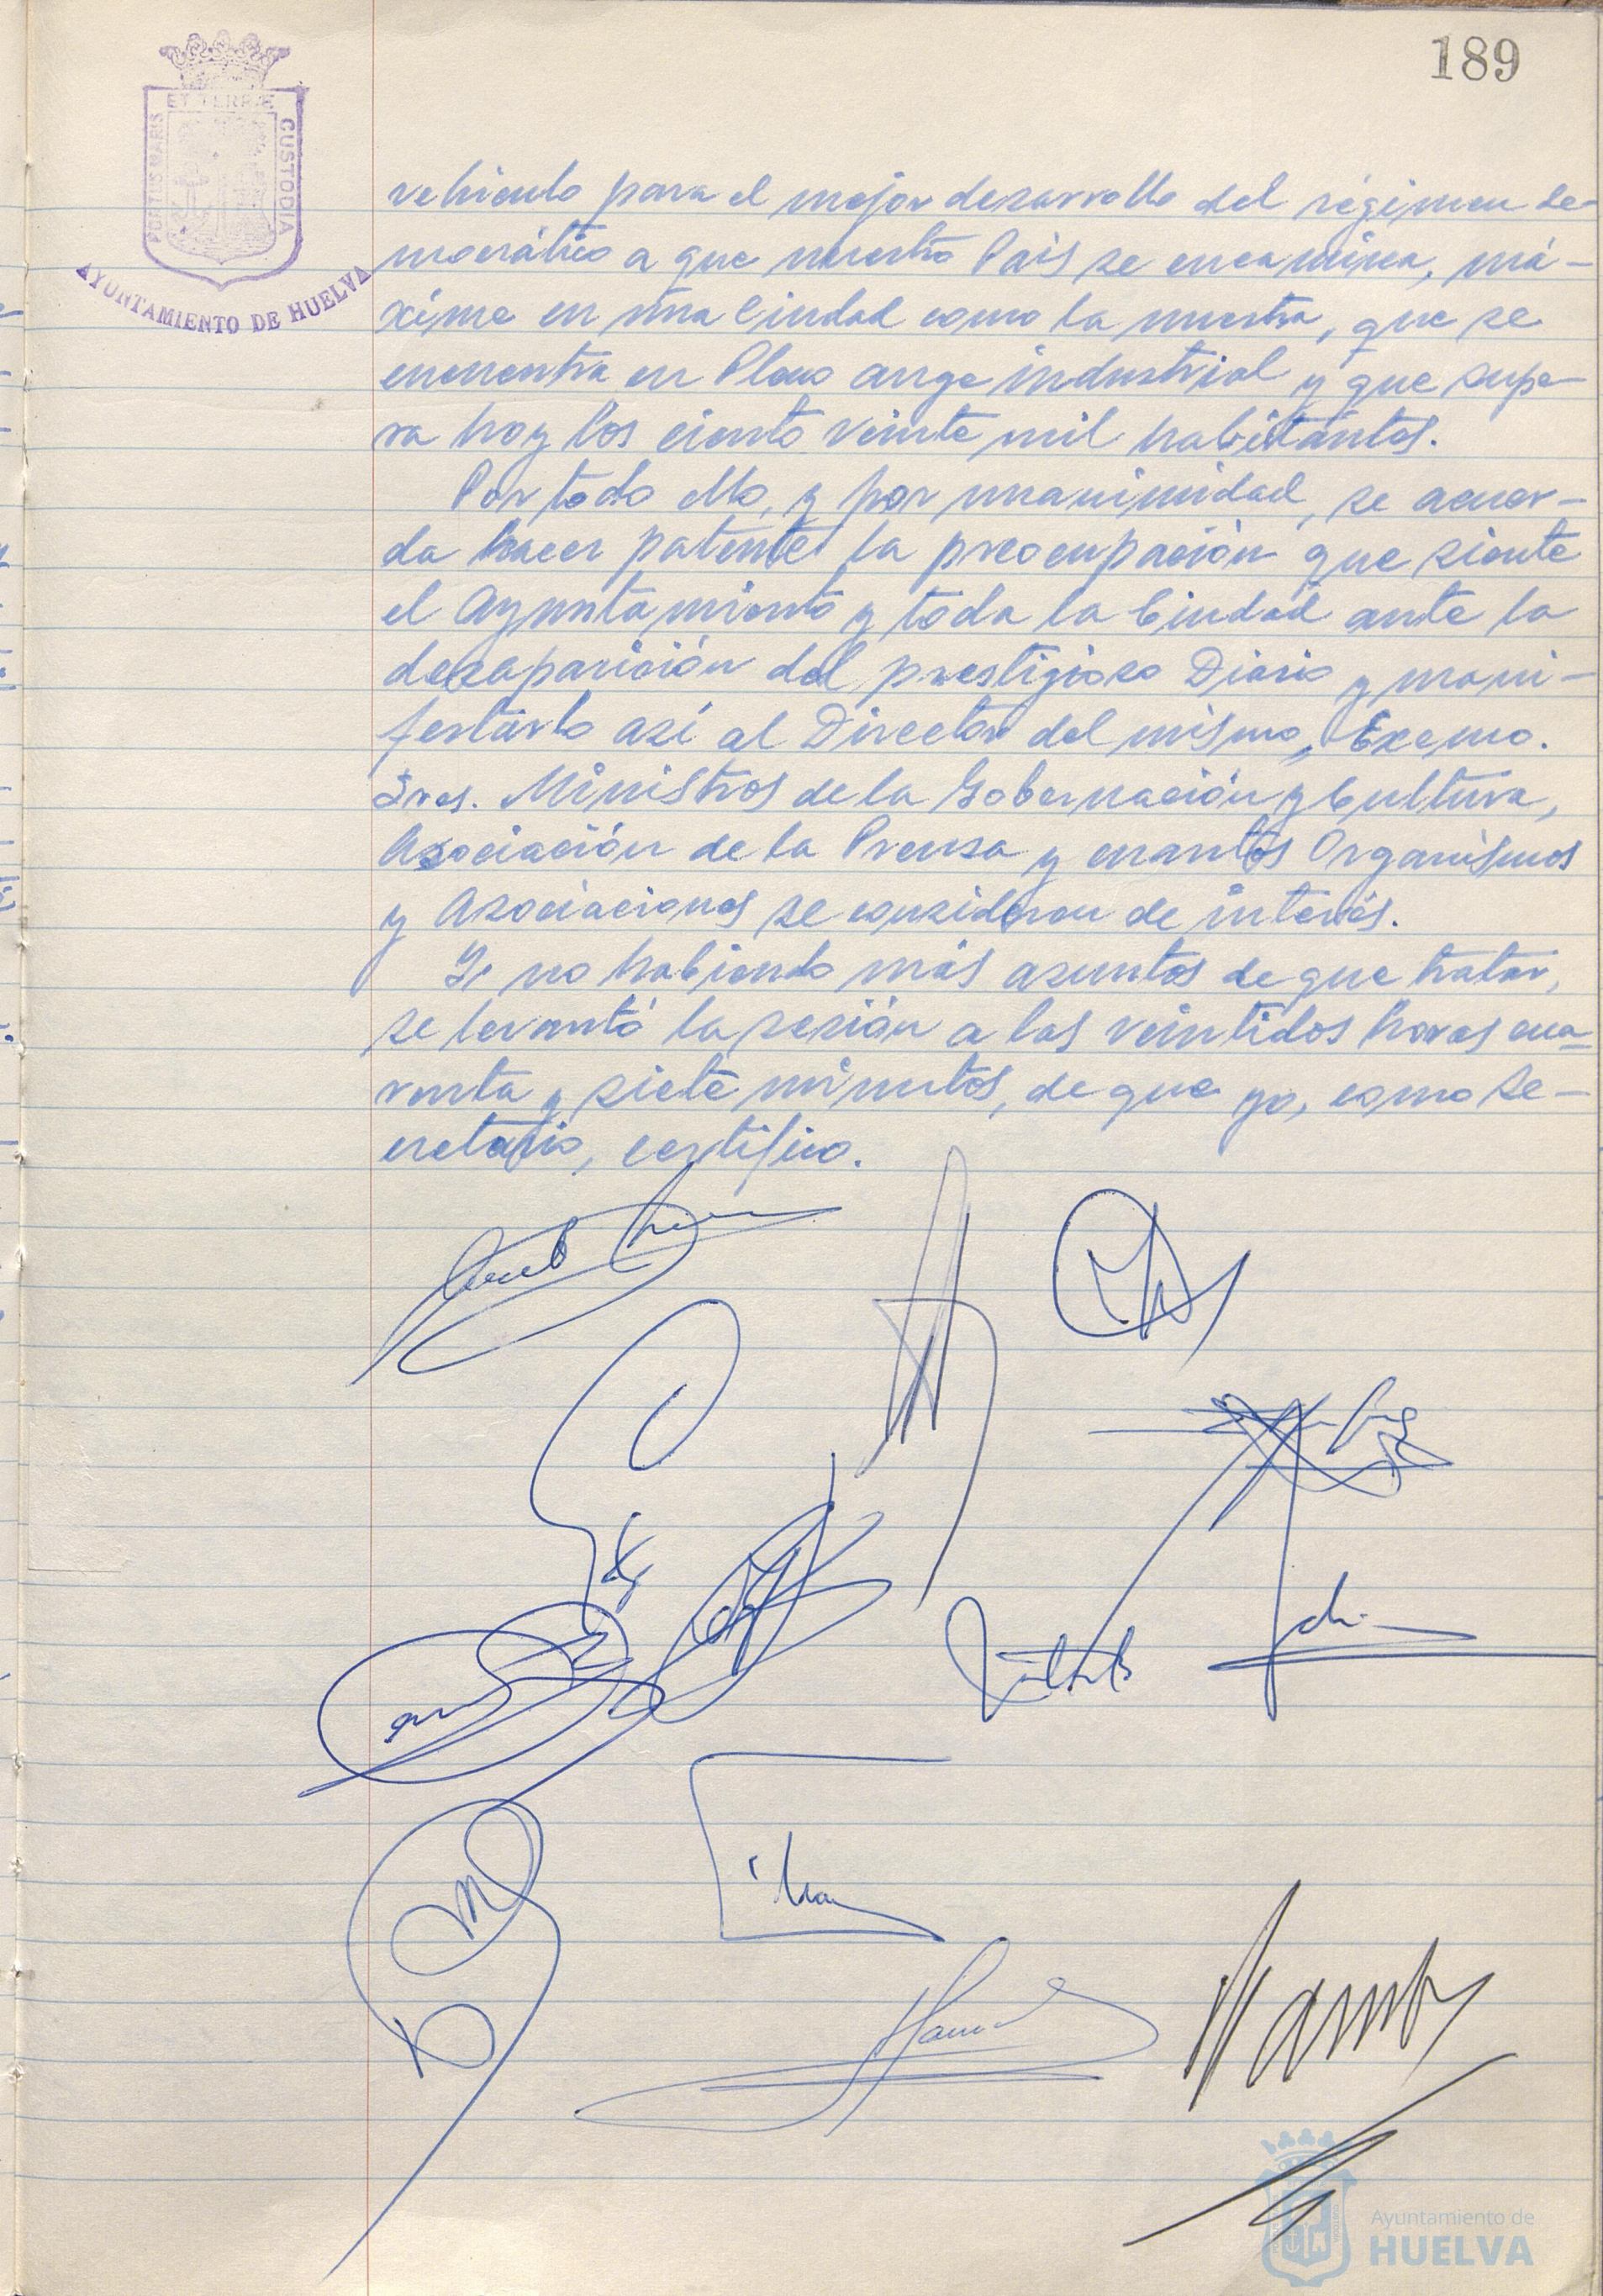 189
PORTUS MARIS
ET TERRAE
CUSTODIA
AYUNTAMIENTO DE HUELVA
vehiculo para el mejor desarrollo del régimen de-
mocrático a que nuestro Pais se encamina, má-
xime en una Ciudad como la nuestra, que se
encuentra en Pleno auge industrial y que supe-
ra hoy los ciento veinte mil habitantes.
Por todo ello, y por unanimidad, se acuer-
da hacer patente la preocupación que siente
el Ayuntamiento y toda la Ciudad ante la
desaparición del prestigioso Diario y mani-
festarlo así al Director del mismo, Excmo.
Sres. Ministros de la Gobernación y Cultura,
Asociación de la Prensa y cuantos Organismos
y Asociaciones se consideran de interés.
Y no habiendo más asuntos de que tratar,
se levantó la sesión a las veintidos horas cua-
renta y siete minutos, de que yo, como Se-
cretario, certifico.
Ayuntamiento de
HUELVA